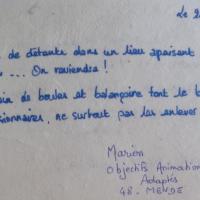 Le 2
de détente dans un lieu apaisant
... On reviendra !
de boules et balançoire font le b
ne surtout pas les enlever
Marion
Objectifs Animation
Adaptés
48 - MENDE